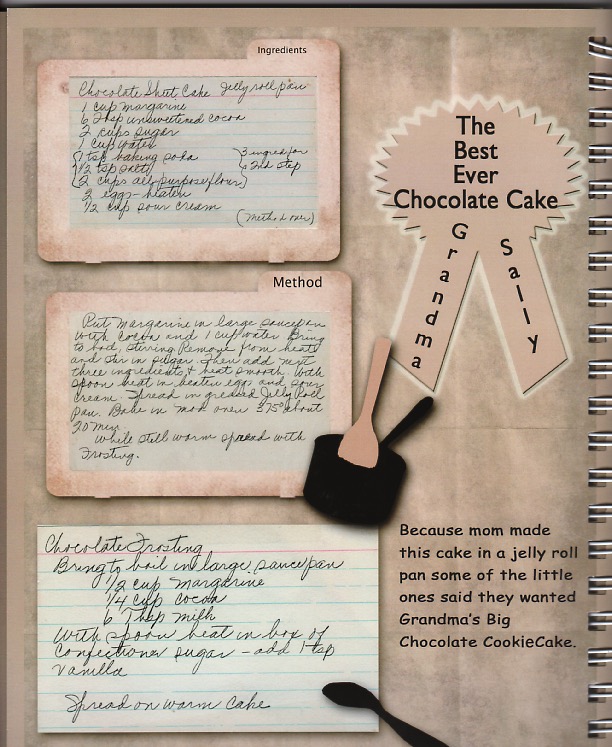 Ingredients
Chocolate Sheet Cake Jelly roll pan
1 cup margarine
6 Tbsp unsweetened cocoa
2 cups sugar
1 cup water
1 tsp baking soda
1/2 tsp salt
2 cups all purpose flour
3 ingred for
2nd step
2 eggs - beaten
1/2 cup sour cream
(Method over)
The
Best
Ever
Chocolate Cake
Grandma
Sally
Method
Put Margarine in large saucepan
with cocoa and 1 cup water Bring
to boil, stirring Remove from heat
and stir in sugar. Then add next
three ingredients & beat smooth. With
spoon beat in beaten eggs and sour
cream. Spread in greased Jelly Roll
pan. Bake in mod oven 375° about
20 min.
While still warm spread with
Frosting.
Chocolate Frosting
Bring to boil in large saucepan
1/2 cup Margarine
1/4 cup cocoa
6 Tbsp milk
With spoon beat in box of
Confectioner sugar - add 1 tsp
vanilla
Spread on warm cake
Because mom made
this cake in a jelly roll
pan some of the little
ones said they wanted
Grandma's Big
Chocolate CookieCake.